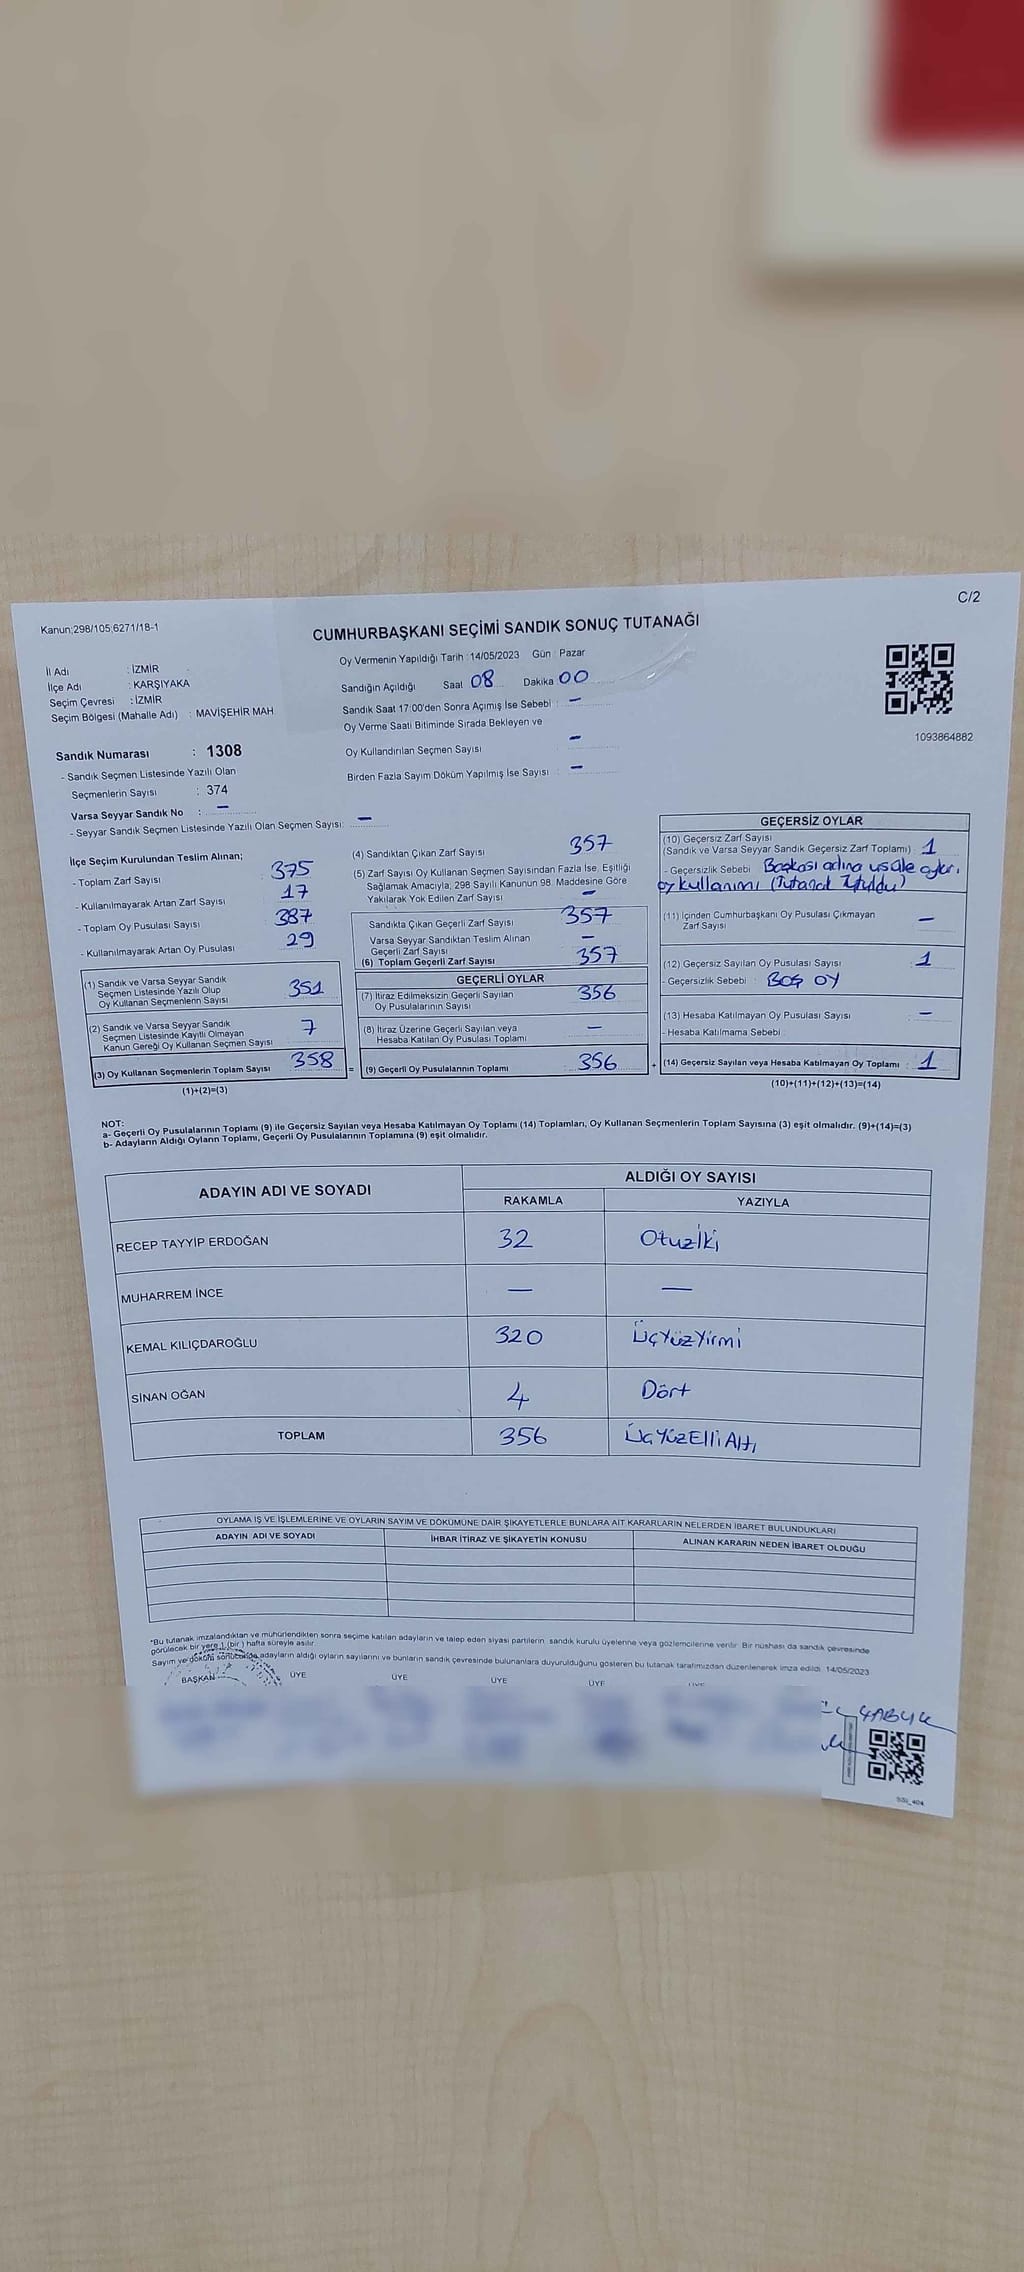 C/2
Kanun;298/105;6271/18-1
CUMHURBAŞKANI SEÇİMİ SANDIK SONUÇ TUTANAĞI
Oy Vermenin Yapıldığı Tarih : 14/05/2023 Gün : Pazar
İl Adı : İZMİR
İlçe Adı : KARŞIYAKA
Seçim Çevresi : İZMİR
Seçim Bölgesi (Mahalle Adı) : MAVİŞEHİR MAH.
Sandık Numarası : 1308
- Sandık Seçmen Listesinde Yazılı Olan
Seçmenlerin Sayısı : 374
Varsa Seyyar Sandık No : —
- Seyyar Sandık Seçmen Listesinde Yazılı Olan Seçmen Sayısı: —
Sandığın Açıldığı Saat 08 Dakika 00
Sandık Saat 17:00'den Sonra Açımış İse Sebebi : —
Oy Verme Saati Bitiminde Sırada Bekleyen ve
Oy Kullandırılan Seçmen Sayısı —
Birden Fazla Sayım Döküm Yapılmış İse Sayısı : —
1093864882
İlçe Seçim Kurulundan Teslim Alınan;
- Toplam Zarf Sayısı : 375
- Kullanılmayarak Artan Zarf Sayısı 17
- Toplam Oy Pusulası Sayısı : 387
- Kullanılmayarak Artan Oy Pusulası 29
(1) Sandık ve Varsa Seyyar Sandık
Seçmen Listesinde Yazılı Olup
Oy Kullanan Seçmenlerin Sayısı 351
(2) Sandık ve Varsa Seyyar Sandık
Seçmen Listesinde Kayıtlı Olmayan
Kanun Gereği Oy Kullanan Seçmen Sayısı 7
(3) Oy Kullanan Seçmenlerin Toplam Sayısı 358
(1)+(2)=(3)
(4) Sandıktan Çıkan Zarf Sayısı 357
(5) Zarf Sayısı Oy Kullanan Seçmen Sayısından Fazla İse, Eşitliği
Sağlamak Amacıyla, 298 Sayılı Kanunun 98. Maddesine Göre
Yakılarak Yok Edilen Zarf Sayısı —
Sandıkta Çıkan Geçerli Zarf Sayısı 357
Varsa Seyyar Sandıktan Teslim Alınan
Geçerli Zarf Sayısı —
(6) Toplam Geçerli Zarf Sayısı 357
GEÇERLİ OYLAR
(7) İtiraz Edilmeksizin Geçerli Sayılan
Oy Pusulalarının Sayısı 356
(8) İtiraz Üzerine Geçerli Sayılan veya
Hesaba Katılan Oy Pusulası Toplamı —
= (9) Geçerli Oy Pusulalarının Toplamı : 356 +
GEÇERSİZ OYLAR
(10) Geçersiz Zarf Sayısı
(Sandık ve Varsa Seyyar Sandık Geçersiz Zarf Toplamı) : 1
- Geçersizlik Sebebi : Başkası adına usüle aykırı
oy kullanımı (Tutanak Tutuldu)
(11) İçinden Cumhurbaşkanı Oy Pusulası Çıkmayan
Zarf Sayısı —
(12) Geçersiz Sayılan Oy Pusulası Sayısı : 1
- Geçersizlik Sebebi : BOŞ OY
(13) Hesaba Katılmayan Oy Pusulası Sayısı : —
- Hesaba Katılmama Sebebi :
(14) Geçersiz Sayılan veya Hesaba Katılmayan Oy Toplamı : 1
(10)+(11)+(12)+(13)=(14)
NOT:
a- Geçerli Oy Pusulalarının Toplamı (9) ile Geçersiz Sayılan veya Hesaba Katılmayan Oy Toplamı (14) Toplamları, Oy Kullanan Seçmenlerin Toplam Sayısına (3) eşit olmalıdır. (9)+(14)=(3)
b- Adayların Aldığı Oyların Toplamı, Geçerli Oy Pusulalarının Toplamına (9) eşit olmalıdır.
ADAYIN ADI VE SOYADI ALDIĞI OY SAYISI
RAKAMLA YAZIYLA
RECEP TAYYİP ERDOĞAN 32 Otuziki
MUHARREM İNCE — —
KEMAL KILIÇDAROĞLU 320 ÜçYüzYirmi
SİNAN OĞAN 4 Dört
TOPLAM 356 ÜçYüzElliAltı
OYLAMA İŞ VE İŞLEMLERİNE VE OYLARIN SAYIM VE DÖKÜMÜNE DAİR ŞİKAYETLERLE BUNLARA AİT KARARLARIN NELERDEN İBARET BULUNDUKLARI
ADAYIN ADI VE SOYADI İHBAR İTİRAZ VE ŞİKAYETİN KONUSU ALINAN KARARIN NEDEN İBARET OLDUĞU
*Bu tutanak imzalandıktan ve mühürlendikten sonra seçime katılan adayların ve talep eden siyasi partilerin, sandık kurulu üyelerine veya gözlemcilerine verilir. Bir nüshası da sandık çevresinde
görülecek bir yere 1 (bir) hafta süreyle asılır.
Sayım ve döküm sonucunda adayların aldığı oyların sayılarını ve bunların sandık çevresinde bulunanlara duyurulduğunu gösteren bu tutanak tarafımızdan düzenlenerek imza edildi. 14/05/2023
BAŞKAN ÜYE ÜYE ÜYE ÜYE